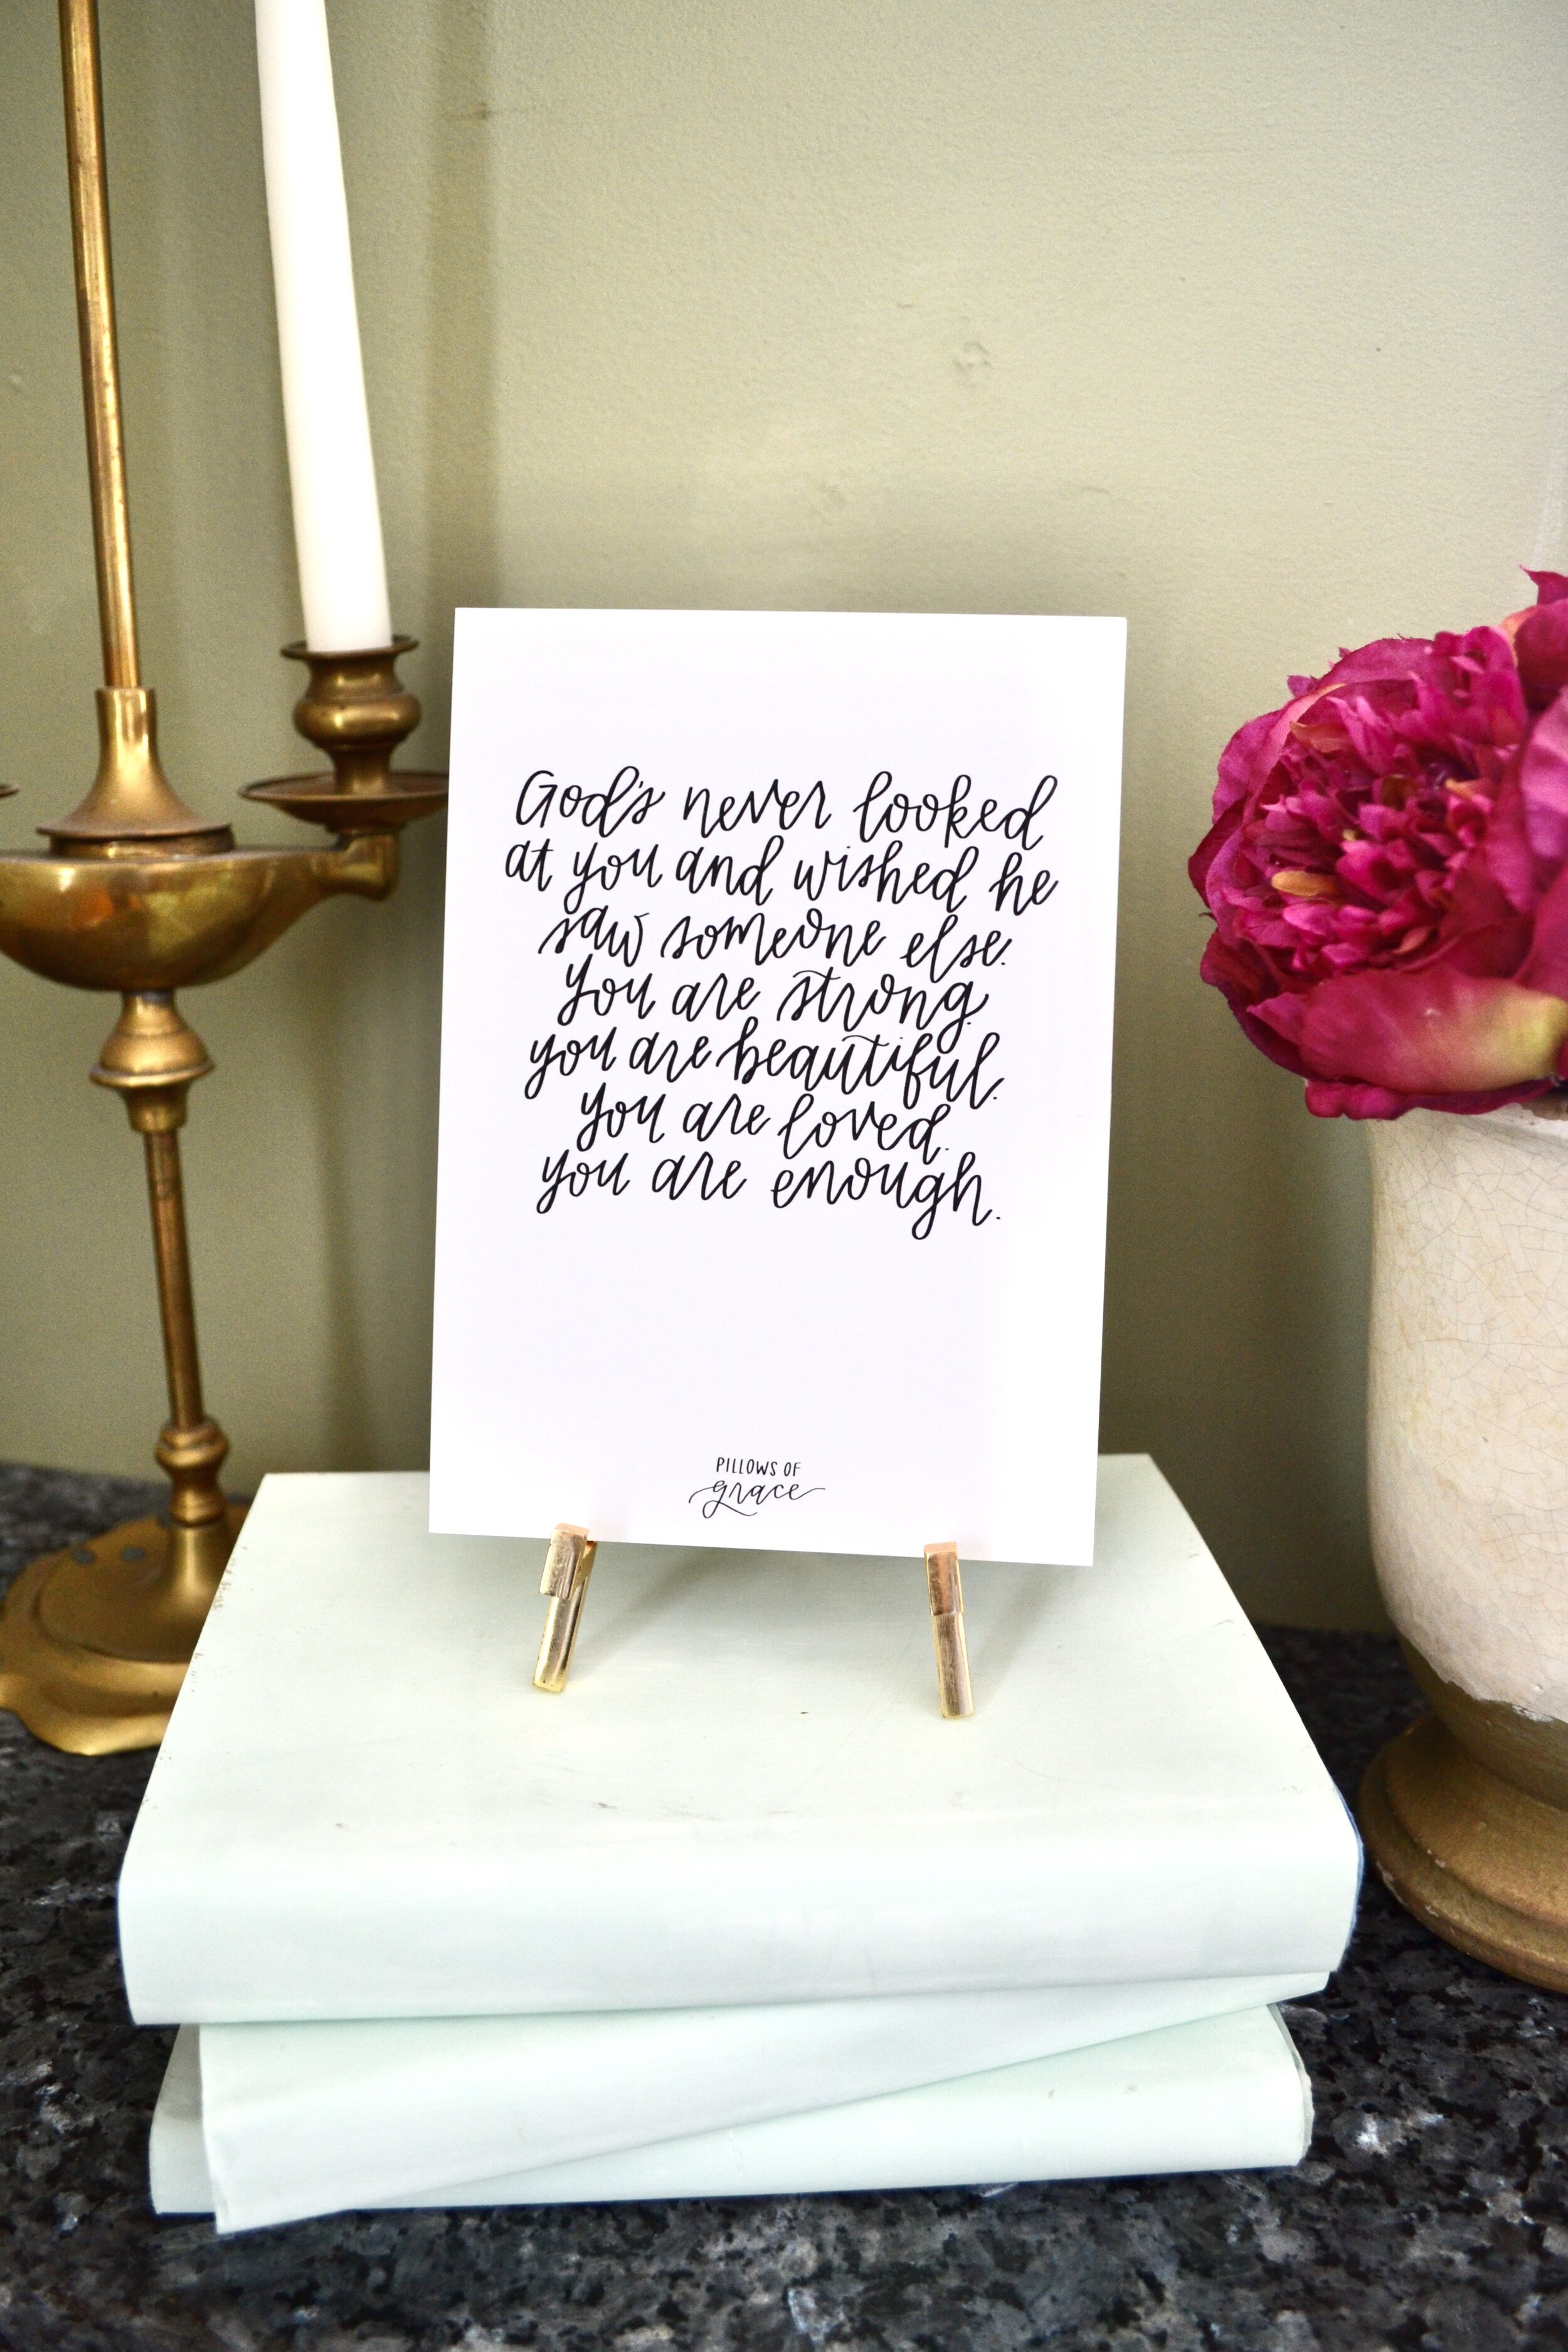 God's never looked
at you and wished he
saw someone else.
You are strong.
you are beautiful.
You are loved.
you are enough.
PILLOWS OF
grace